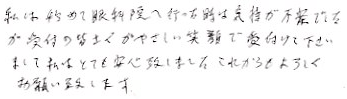 私は初めて眼科院へ行った時は気持が不安でした
が受付の皆さんがやさしい笑顔で受付けて下さい
まして私はとても安心致しましたこれからもよろしく
お願い致したます